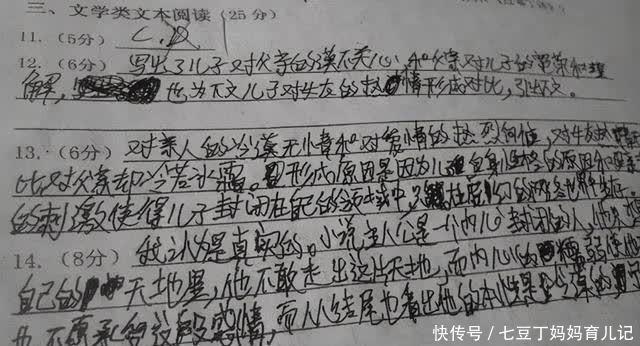 三、文学类文本阅读(25分)
11.(5分) C.D
12.(6分) 写出了儿子对父亲的漠不关心,和父亲对儿子的宽容和理
解,也为下文儿子对女友的热情形成对比,引出下文。
13.(6分) 对亲人的冷漠无情和对爱情的热烈向往,对女友热
比对父亲却冷若冰霜。形成原因是因为儿子自身性格的原因和
的刺激使得儿子封闭在自己的领域中,只在虚幻的网络世界
14.(8分) 我认为是真实的。小说主人公是一个内心封闭的人,他
自己的天地里,他不敢走出这片天地,而内心的
也不愿承
情,而从结尾也看出他的本性
快传号/七豆丁妈妈育儿记